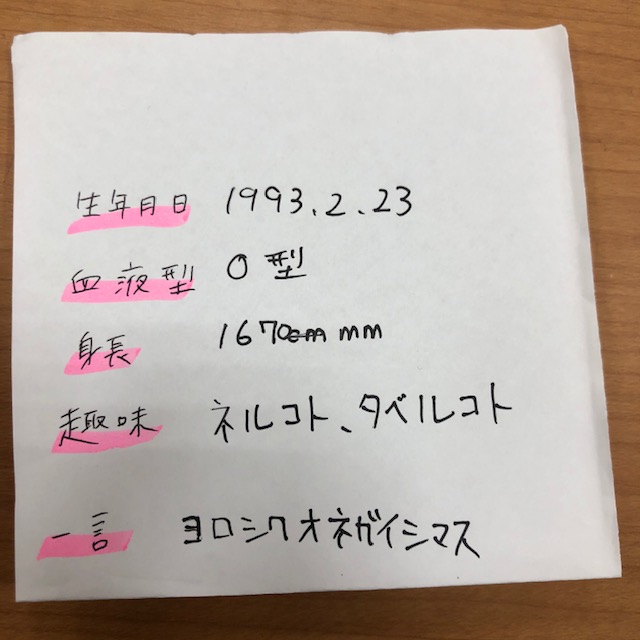 生年月日 1993.2.23
血液型 O型
身長 1670mm
趣味 ネルコト、タベルコト
一言 ヨロシクオネガイシマス